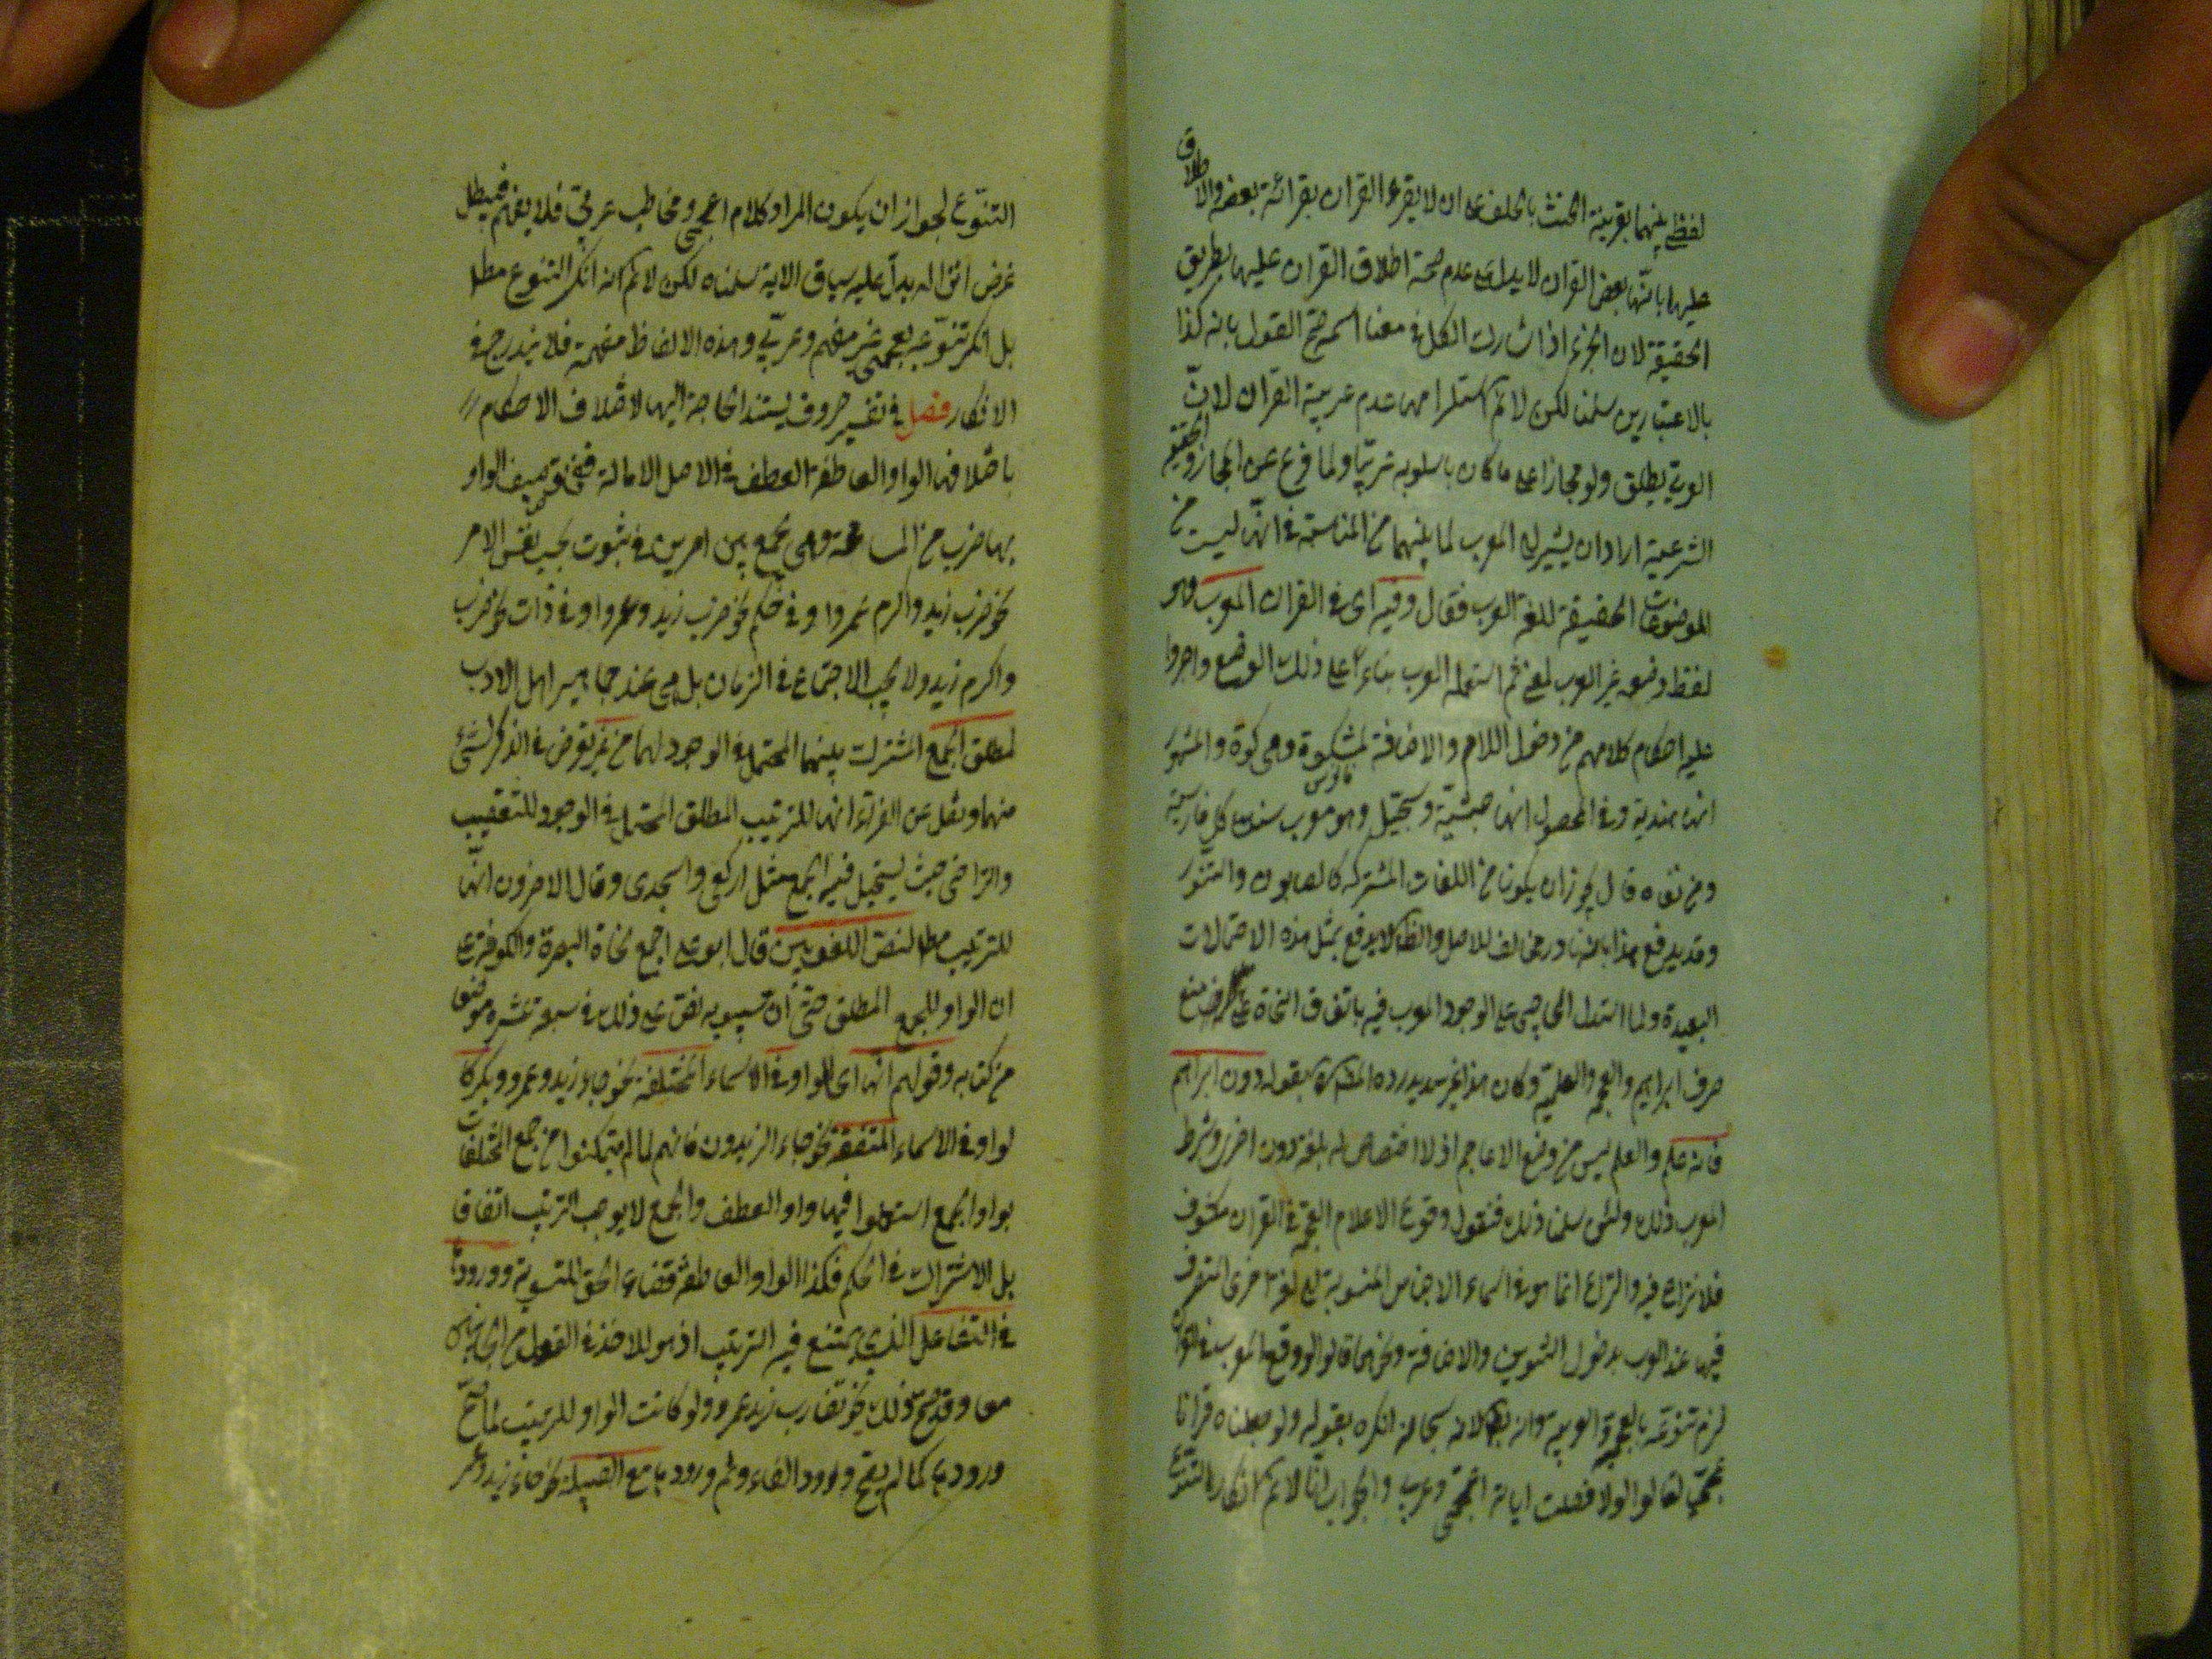 لفظي بينهما بقرينة الحنث بالحلف على ان لا يقرء القران بقرائة بعضه والاطلاق
عليها بانها بعض القران لا يدل على عدم صحة اطلاق القران عليها بطريق
الحقيقة لان الجزء اذا شارك الكل في معنا اسمه صح القول بانه كذا
بالاعتبارين سلمنا لكن لا نم استلزامها عدم عربية القران لانّ
العربي يطلق ولو مجازا على ما كان باسلوبه عربيا ولما فرغ عن المجاز والحقيقة
الشرعية اراد ان يشير الى المعرب لما بينهما من المناسبة في انها ليست من
الموضوعات الحقيقية للغة العرب فقال وفيه اى في القران المعرب وهو
لفظ وضعه غير العرب لمعنى ثم استعمله العرب بناء على ذلك الوضع واجروا
عليه احكام كلامهم من دخول اللام والاضافة كمشكوة وهى كوة والمشهور
انها هندية وفي المحصول انها حبشية وسجيل وهو معرب سنك كل فارسية
ومن نفاه قال يجوز ان يكونا من اللغات المشتركه كالصابون والتنور
وقد يدفع هذا بانه نادر مخالف للاصل والظ لا يدفع بمثل هذه الاحتمالات
البعيدة ولما استدل الحاجبى على الوجود المعرب فيه باتفاق النحاة على منع
صرف ابراهيم والعجمة والعلمية وكان هذا غير سديد رده بقوله دون ابراهيم
فانه علم والعلم ليس من وضع الاعاجم اذ لا اختصاص له بلغة دون اخرى وشرط
المعرب ذلك ولئن سلمنا ذلك فنقول وقوع الاعلام العجمة في القران مكشوف
فلا نزاع فيه والنزاع انما هو في اسماء الاجناس المنسوبة الى لغة اخرى المتصرف
فيها عند العرب بدخول التنوين والاضافة ونحوهما قالوا لو وقع المعرب في القران
لزم تنوعه بالعجمة والعربية وانه بط لانه سبحانه انكره بقوله ولو جعلناه قرانا
عجميا لقالوا لولا فصلت اياته اعجمى وعربى والجواب انا لا نم انكاره التنوع
التنوّع لجواز ان يكون المراد كلام اعجمى ومخاطب عربيّ فلا يفهم فيبطل
غرض انزاله يدلّ عليه سياق الاية سلمناه لكن لا نم انه انكر التنوع مطلـ
بل انكر تنوّعه بعجمى غير مفهم وعربيّ وهذه الالفاظ مفهمة فلا يندرج في
الانكار فصل في تفسير حروف يشتد الحاجة اليها لاختلاف الاحكام
باختلافها الواو العاطفة العطف في الاصل الامالة فى توصيف الواو
بها ضرب من المسامحة وهى تجمع بين امرين في ثبوت بحسب نفس الامر
نحو ضرب زيد واكرم عمرو او في حكم نحو ضرب زيد وعمرو او في ذات نحو ضرب
واكرم زيد ولا يجب الاجتماع في الزمان بل هى عند جماهير اهل الادب
لمطلق الجمع المشترك بينهما المحتمل في الوجود لهما من غير تعرض في الذكر لشئ
منهما ونقل عن الفراء انها للترتيب المطلق المحتمل في الوجود للتعقيب
والتراخى حيث يستحيل فيه الجمع مثل اركعى واسجدى وقال الاخرون انها
للترتيب مطـ لنص اللغويين قال ابو على اجمع نحاة البصرة والكوفة على
ان الواو للجمع المطلق حتى ان سيبويه نص على ذلك في سبعة عشر موضع
من كتابه وقولهم انها اى الواو في الاسماء المختلفة نحو جاء زيد وعمرو وبكر كا
لواو في الاسماء المتفقة نحو جاء الزيدون فانهم لما لم يتمكنوا من جمع المختلفات
بواو الجمع استعملوا فيها واو العطف والجمع لا يوجب الترتيب اتفاقا
بل الاشتراك في الحكم فكذا الواو العاطفة قضاء لحق المتسوية وورودها
في التفاعل الذي يمتنع فيه الترتيب اذ هو للاخذ في الفعل من الجانبين
معا وقد صح ذلك نحو تضارب زيد عمرو ولو كانت الواو للترتيب لما صح
ورودها كما لم يصح ورود الفاء وثم ورودها مع القبيلة نحو جاء زيد وعمر